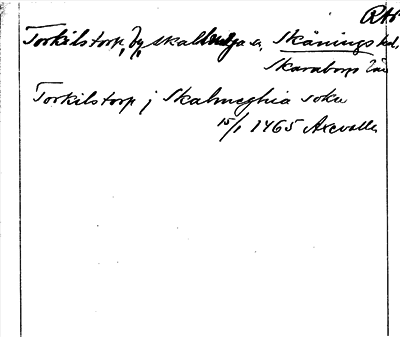 RAp
Torkilstorp, by Skallmeja sn, Skånings hd,
Skaraborgs län
Torkilstorp j Skalmeghia sokn
15/1 1465 Axevalla